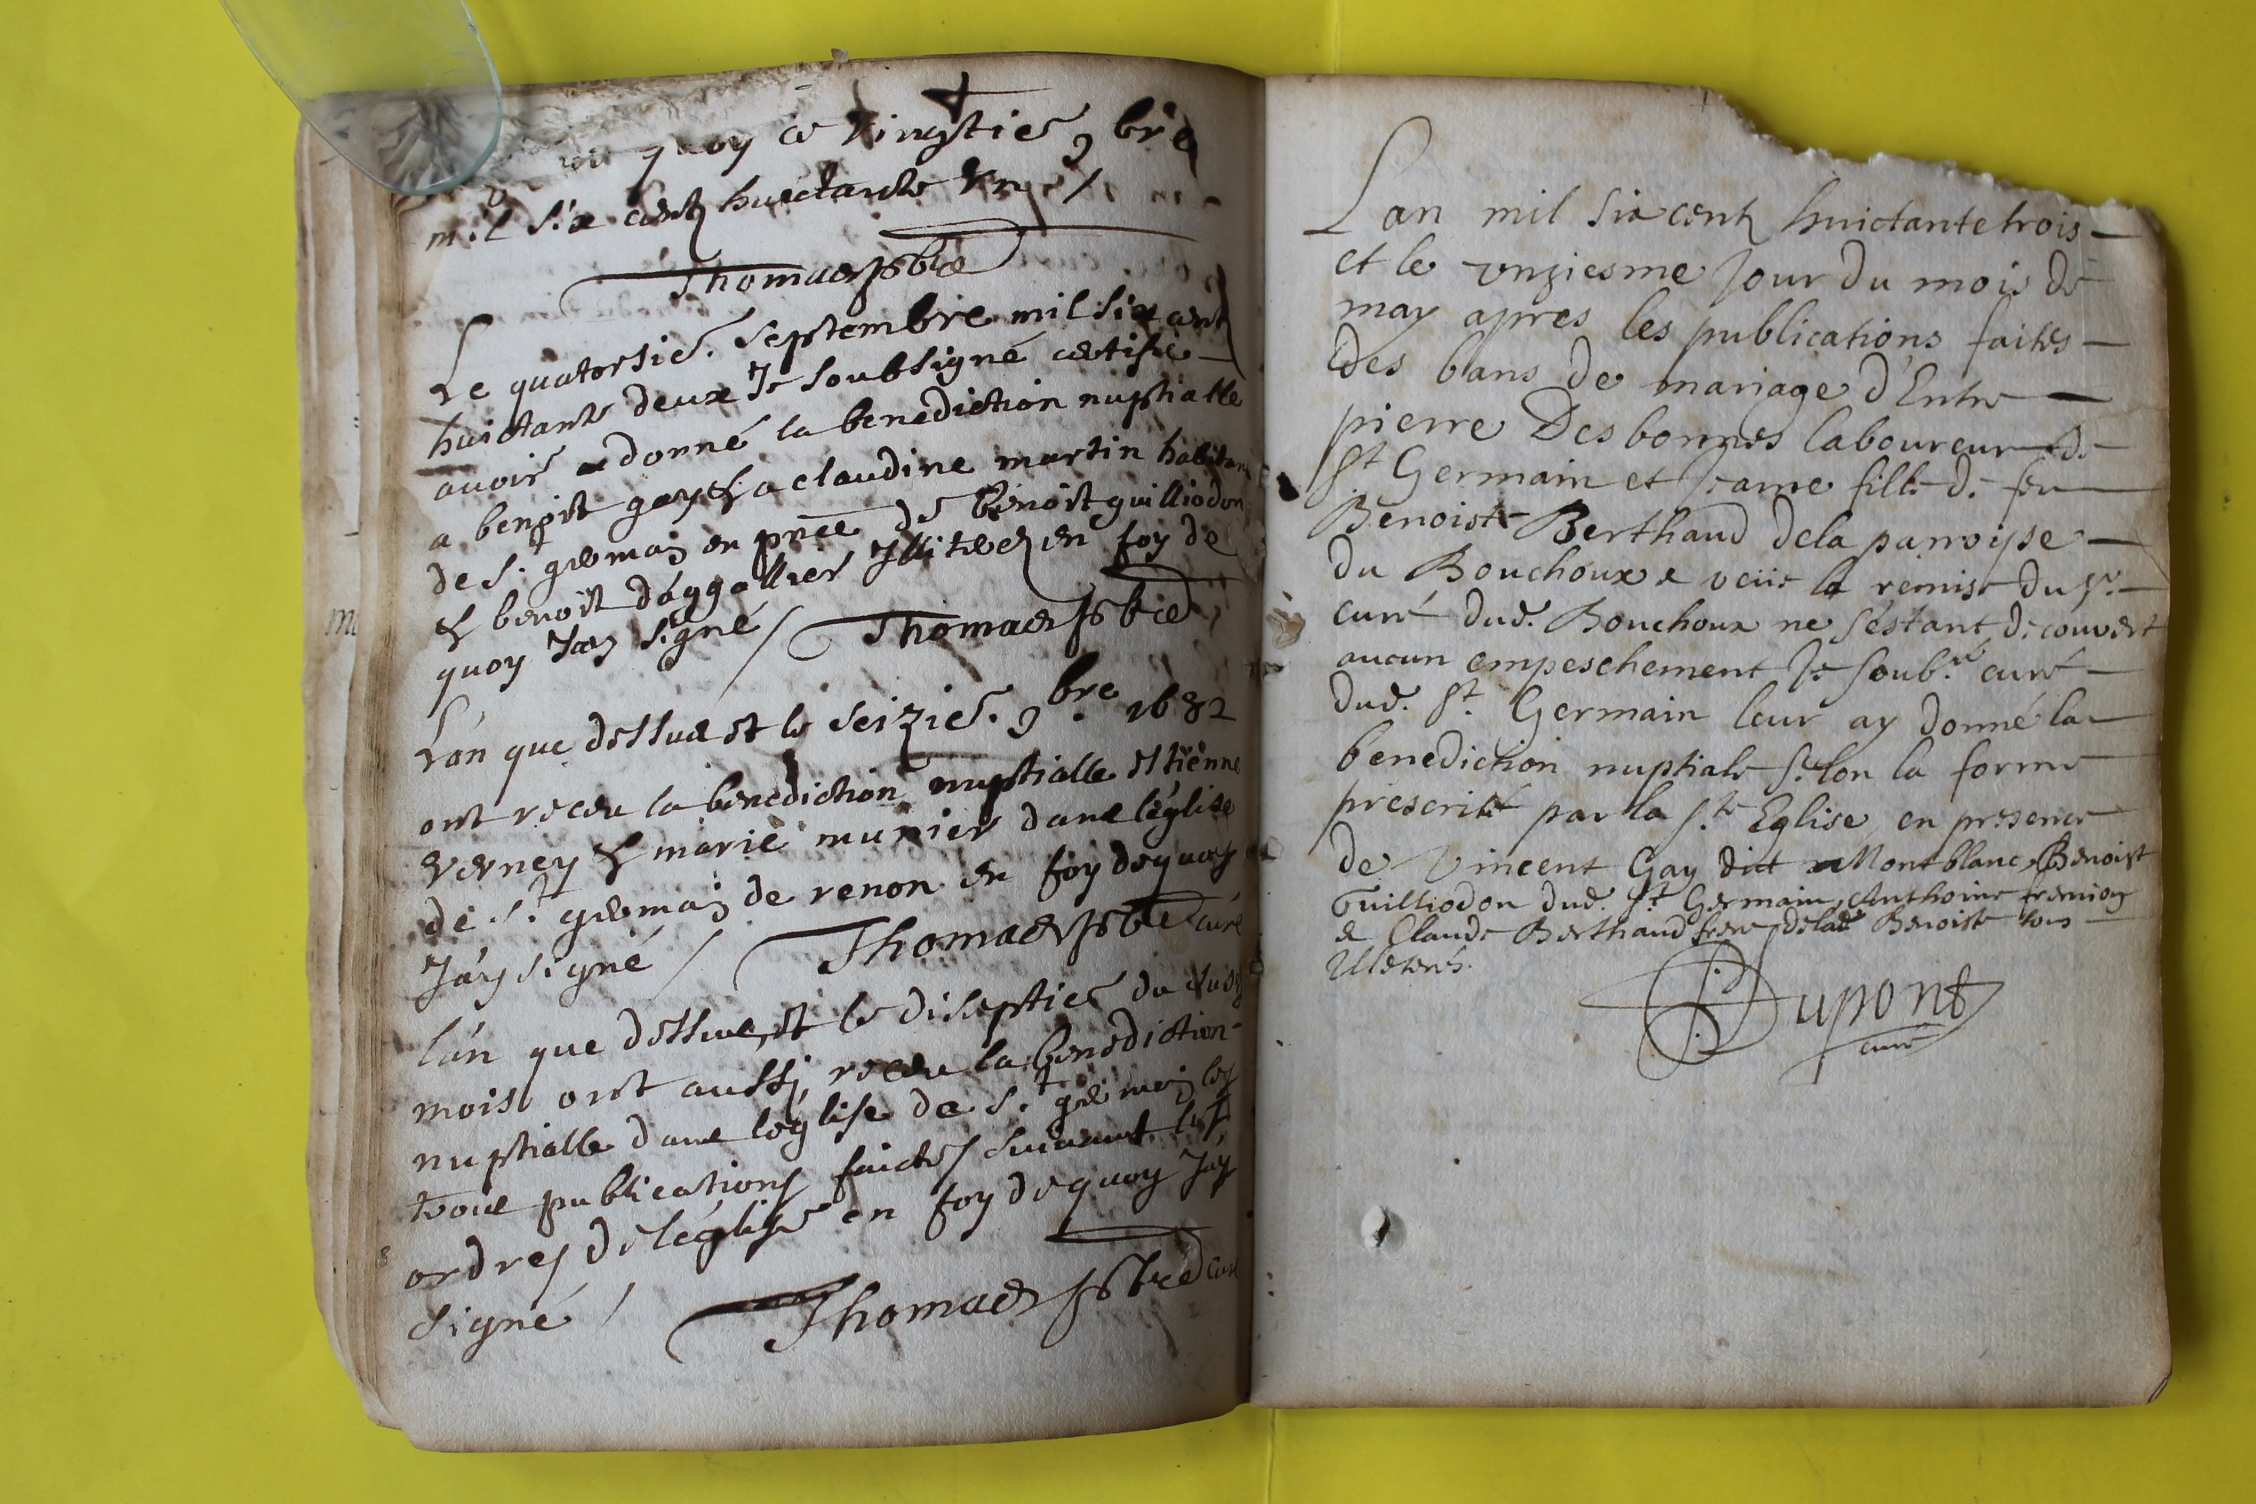 quoy ce vingtie 9 bre
mil six centz huictante un /
Thomas pbre
Le quatorsie. septembre mil six centz
huictante deux Je soubsigné certifie
avoir donné la benediction nuptialle
a benoit gay & a claudine martin habitans
de st. germain en pnce de benoit guilliodon
& benoit daggallier Illiteres en foy de
quoy Jay signé / Thomas pbre
L'an que dessus et le seizie. 9bre. 1682
ont receu la benediction nuptialle estienne
verney & marie munier dans l'église
de st. germain de renon en foy de quoy
J'ay signé / Thomas pbre curé
l'an que dessus, et le diseptie du susd
mois ont aussy receu la benediction
nuptialle dans l'eglise de st. germain les
trois publications faictes suivant les
ordres de l'églisse en foy de quoy J'ay
signé / Thomas pbre curé
Lan mil six centz huictante trois
et le vnziesme Jour du mois de
may apres les publications faites
des bans de mariage d'Entre
pierre Desbornes laboureur de
st Germain et jeanne fille de feu
Benoist Berthaud de la parroisse
du Bouchoux & veüe la remise du sr.
curé dud. Bouchoux ne s'estant découvert
aucun empeschement Je soub.né curé
dud. st. Germain leur ay donné la
benediction nuptiale selon la forme
prescrite par la ste Eglise, en presence
de Vincent Gay dict Montblanc, Benoist
Guilliodon dud. st Germain, Anthoine fremion
& Claude Berthaud frere de lad Benoiste tous
Illeterés.
Dupont
curé